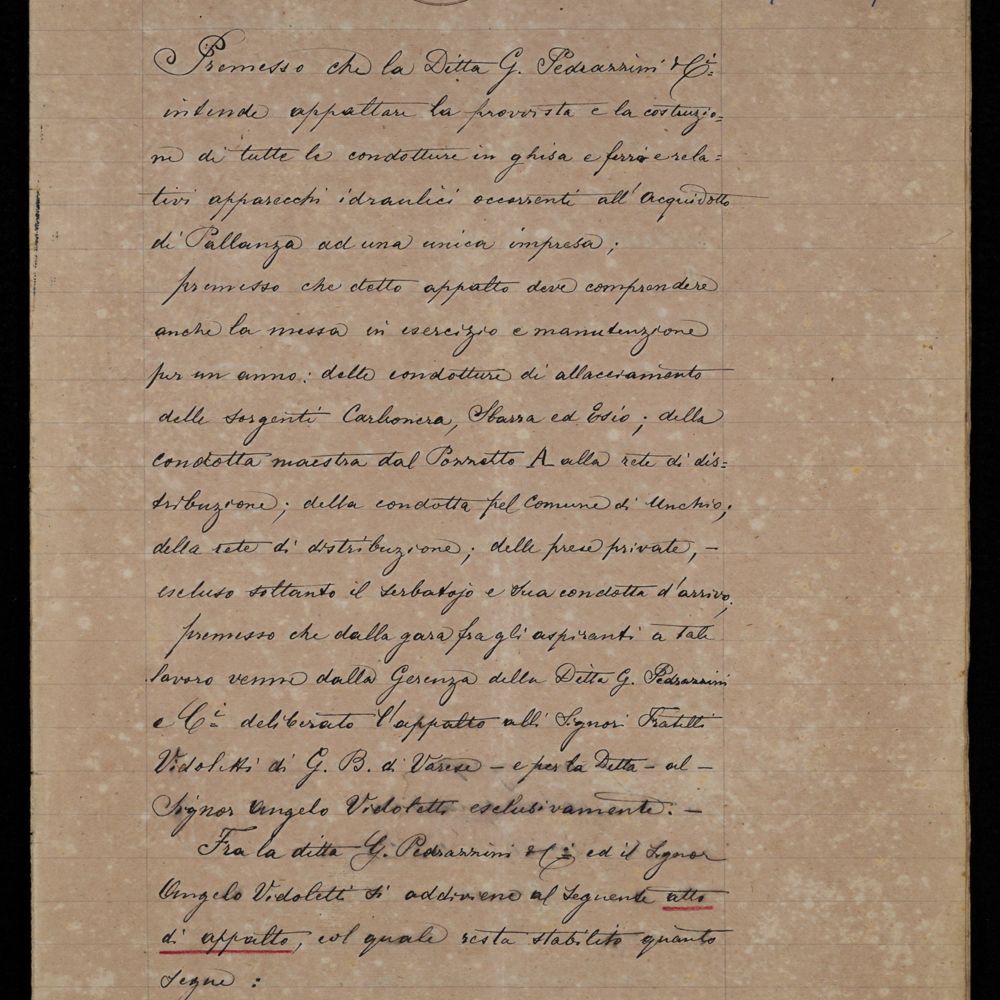 Premesso che la Ditta G. Pedrazzini & C.i
intende appaltare la provvista e la costruzio=
ne di tutte le condotture in ghisa e ferro e rela=
tivi apparecchi idraulici occorrenti all'Acquidotto
di Pallanza ad una unica impresa;
premesso che detto appalto deve comprendere
anche la messa in esercizio e manutenzione
per un anno: delle condotture di allacciamento
delle sorgenti Carbonera, Sbarra ed Esio; della
condotta maestra dal Pozzetto A alla rete di dis=
tribuzione; della condotta pel Comune di Unchio;
della rete di distribuzione; delle prese private, -
escluso soltanto il serbatojo e sua condotta d'arrivo;
premesso che dalla gara fra gli aspiranti a tale
lavoro venne dalla Gerenza della Ditta G. Pedrazzini
e C.i deliberato l'appalto alli Signori Fratelli
Vidoletti di G. B. di Varese - e per la Ditta - al -
Signor Angelo Vidoletti esclusivamente. -
Fra la ditta G. Pedrazzini & C.i ed il Signor
Angelo Vidoletti si addiviene al seguente atto
di appalto, col quale resta stabilito quanto
segue: